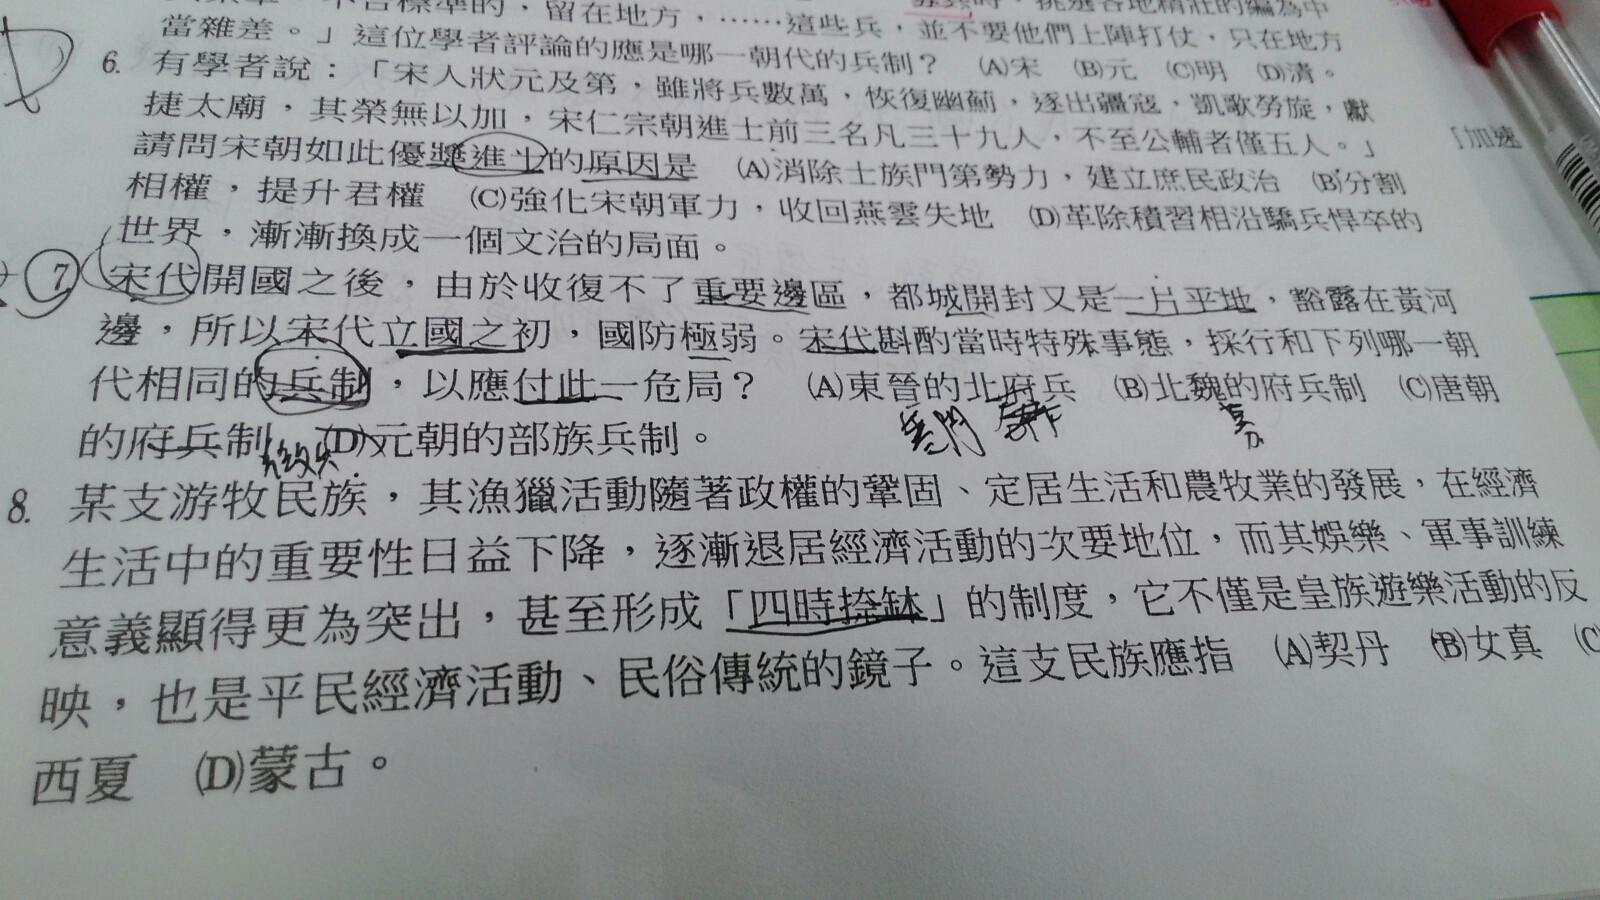 不合標準的，留在地方，……這些兵，並不要他們上陣打仗，只在地方
當雜差。」這位學者評論的應是哪一朝代的兵制？ (A)宋 (B)元 (C)明 (D)清。
6. 有學者說：「宋人狀元及第，雖將兵數萬，恢復幽薊，逐出疆寇，凱歌勞旋，獻
捷太廟，其榮無以加，宋仁宗朝進士前三名凡三十九人，不至公輔者僅五人。」
請問宋朝如此優獎進士的原因是 (A)消除士族門第勢力，建立庶民政治 (B)分割
相權，提升君權 (C)強化宋朝軍力，收回燕雲失地 (D)革除積習相沿驕兵悍卒的
世界，漸漸換成一個文治的局面。
「加速
7 宋代開國之後，由於收復不了重要邊區，都城開封又是一片平地，豁露在黃河
邊，所以宋代立國之初，國防極弱。宋代斟酌當時特殊事態，採行和下列哪一朝
代相同的兵制，以應付此一危局？ (A)東晉的北府兵 (B)北魏的府兵制 (C)唐朝
的府兵制 (D)元朝的部族兵制。
募
8. 某支游牧民族，其漁獵活動隨著政權的鞏固、定居生活和農牧業的發展，在經濟
生活中的重要性日益下降，逐漸退居經濟活動的次要地位，而其娛樂、軍事訓練
意義顯得更為突出，甚至形成「四時捺缽」的制度，它不僅是皇族遊樂活動的反
映，也是平民經濟活動、民俗傳統的鏡子。這支民族應指 (A)契丹 (B)女真 (C
西夏 (D)蒙古。